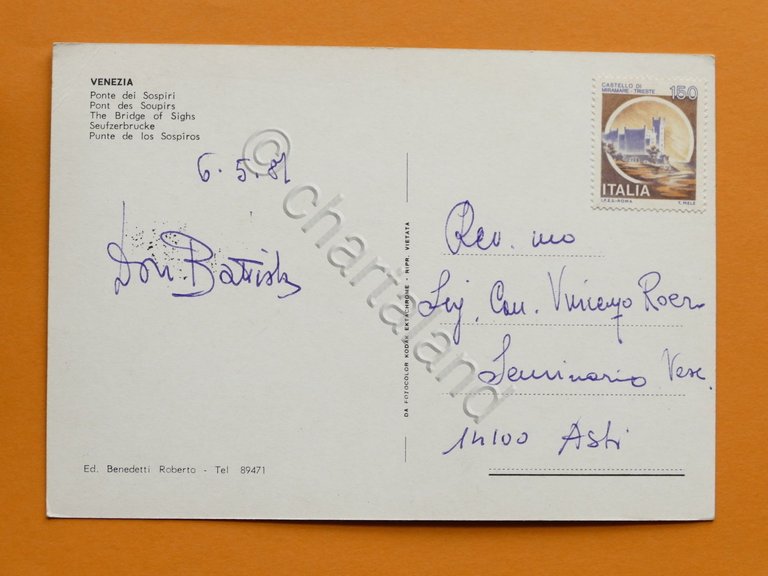 VENEZIA
Ponte dei Sospiri
Pont des Soupirs
The Bridge of Sighs
Seufzerbrucke
Punte de los Sospiros
6.5.81
Don Battista
Ed. Benedetti Roberto - Tel 89471
DA FOTOCOLOR KODAK EKTACHROME - RIPR. VIETATA
CASTELLO DI
MIRAMARE - TRIESTE
150
ITALIA
I.P.Z.S.-ROMA E. MELE
Rev. mo
Sig. Can. Vincenzo Roero
Seminario Vesc.
14100 Asti
© chartaland